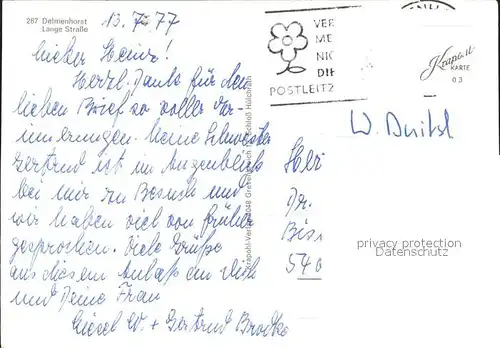 287 Delmenhorst
Lange Straße
13. 7. 77
VER
ME
NIC
DIE
POSTLEITZ
Krapohl
KARTE
03
Lieber Heinz!
Herzl. Dank für den
lieben Brief so voller Er-
innerungen. Meine Schwester
Gertrud ist im Augenblick
bei mir zu Besuch und
wir haben viel von früher
gesprochen. Viele Grüße
aus diesem Anlaß an Dich
und Deine Frau
W. + Gertrud
Krapohl-Verlag 4048 Grevenbroich Schloß Hülchrath
W.
Dr.
Bis
540
privacy protection
Datenschutz